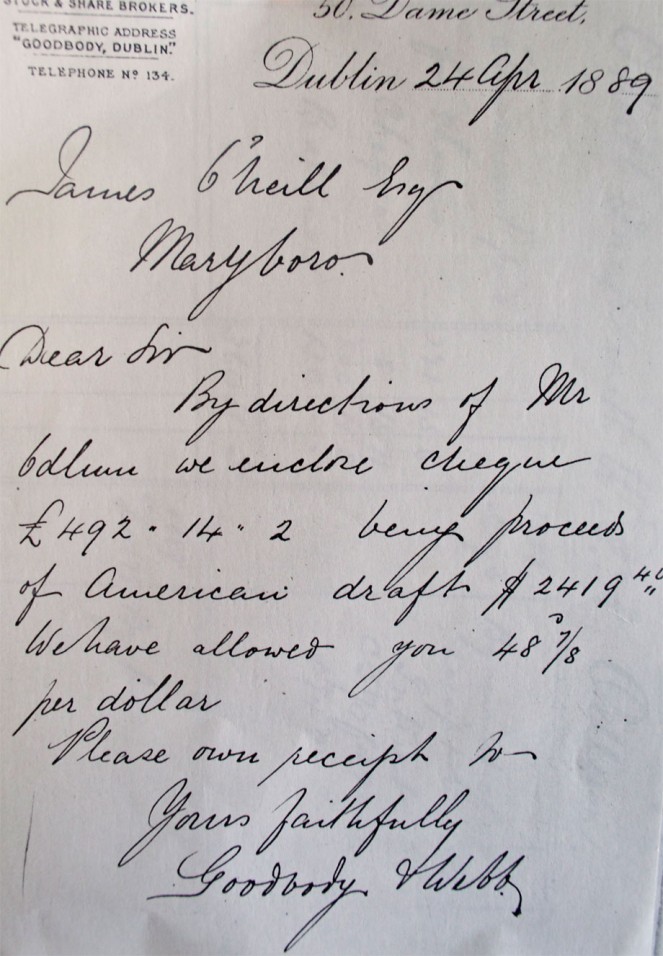 STOCK & SHARE BROKERS.
TELEGRAPHIC ADDRESS
"GOODBODY, DUBLIN."
TELEPHONE Nº 134.
50, Dame Street,
Dublin 24 Apr 1889
James O'Neill Esq
Maryboro.
Dear Sir
By directions of Mr
Odlum we enclose cheque
£492 " 14 " 2 being proceeds
of American draft $2419 40
We have allowed you 48 7/8
per dollar
Please own receipt to
Yours faithfully
Goodbody & Webb